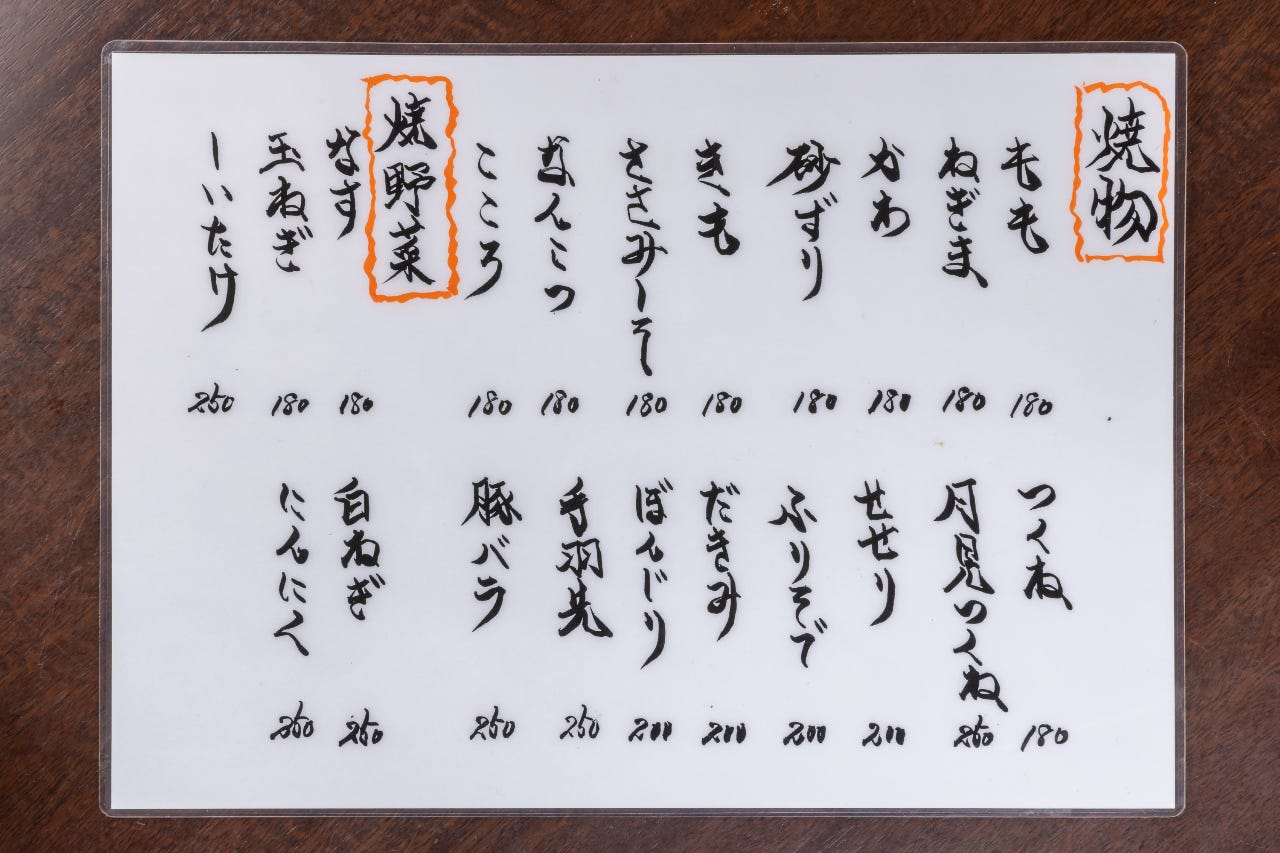 焼物
もも 180
ねぎま 180
かわ 180
砂ずり 180
きも 180
ささみしそ 180
なんこつ 180
こころ 180
つくね 180
月見つくね 250
せせり 200
ふりそで 200
だきみ 200
ぼんじり 200
手羽先 250
豚バラ 250
焼野菜
なす 180
玉ねぎ 180
しいたけ 250
白ねぎ 250
にんにく 250